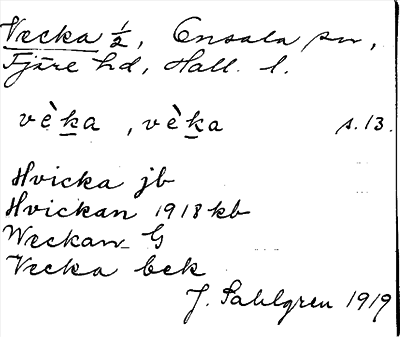 Vecka ½, Onsala sn,
Fjäre hd, Hall. l.
vèka, vèka s. 13.
Hvicka jb
Hvickan 1918 kb
Weckan G
Vecka bek
J. Sahlgren 1919